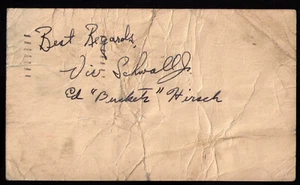 Best Regards,
Viv. Schwall Jr.
Ed "Buckets" Hirsch